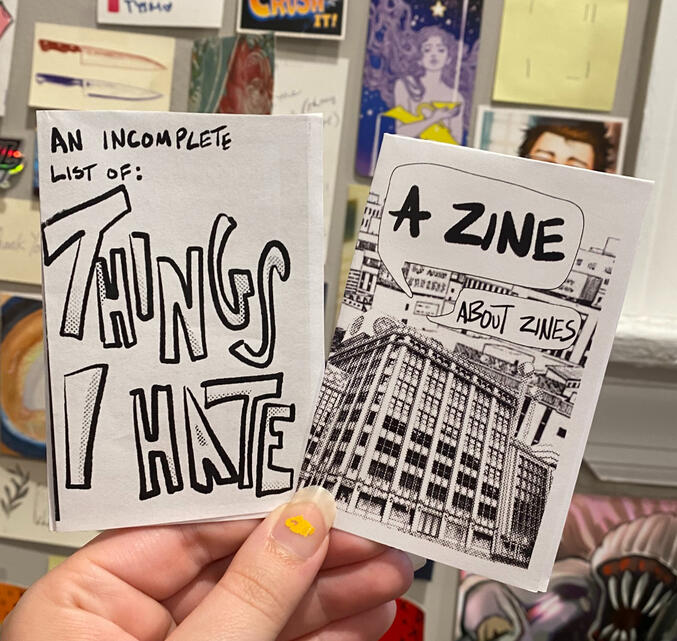 AN INCOMPLETE
LIST OF:
THINGS
I HATE
A ZINE
ABOUT ZINES
IT!